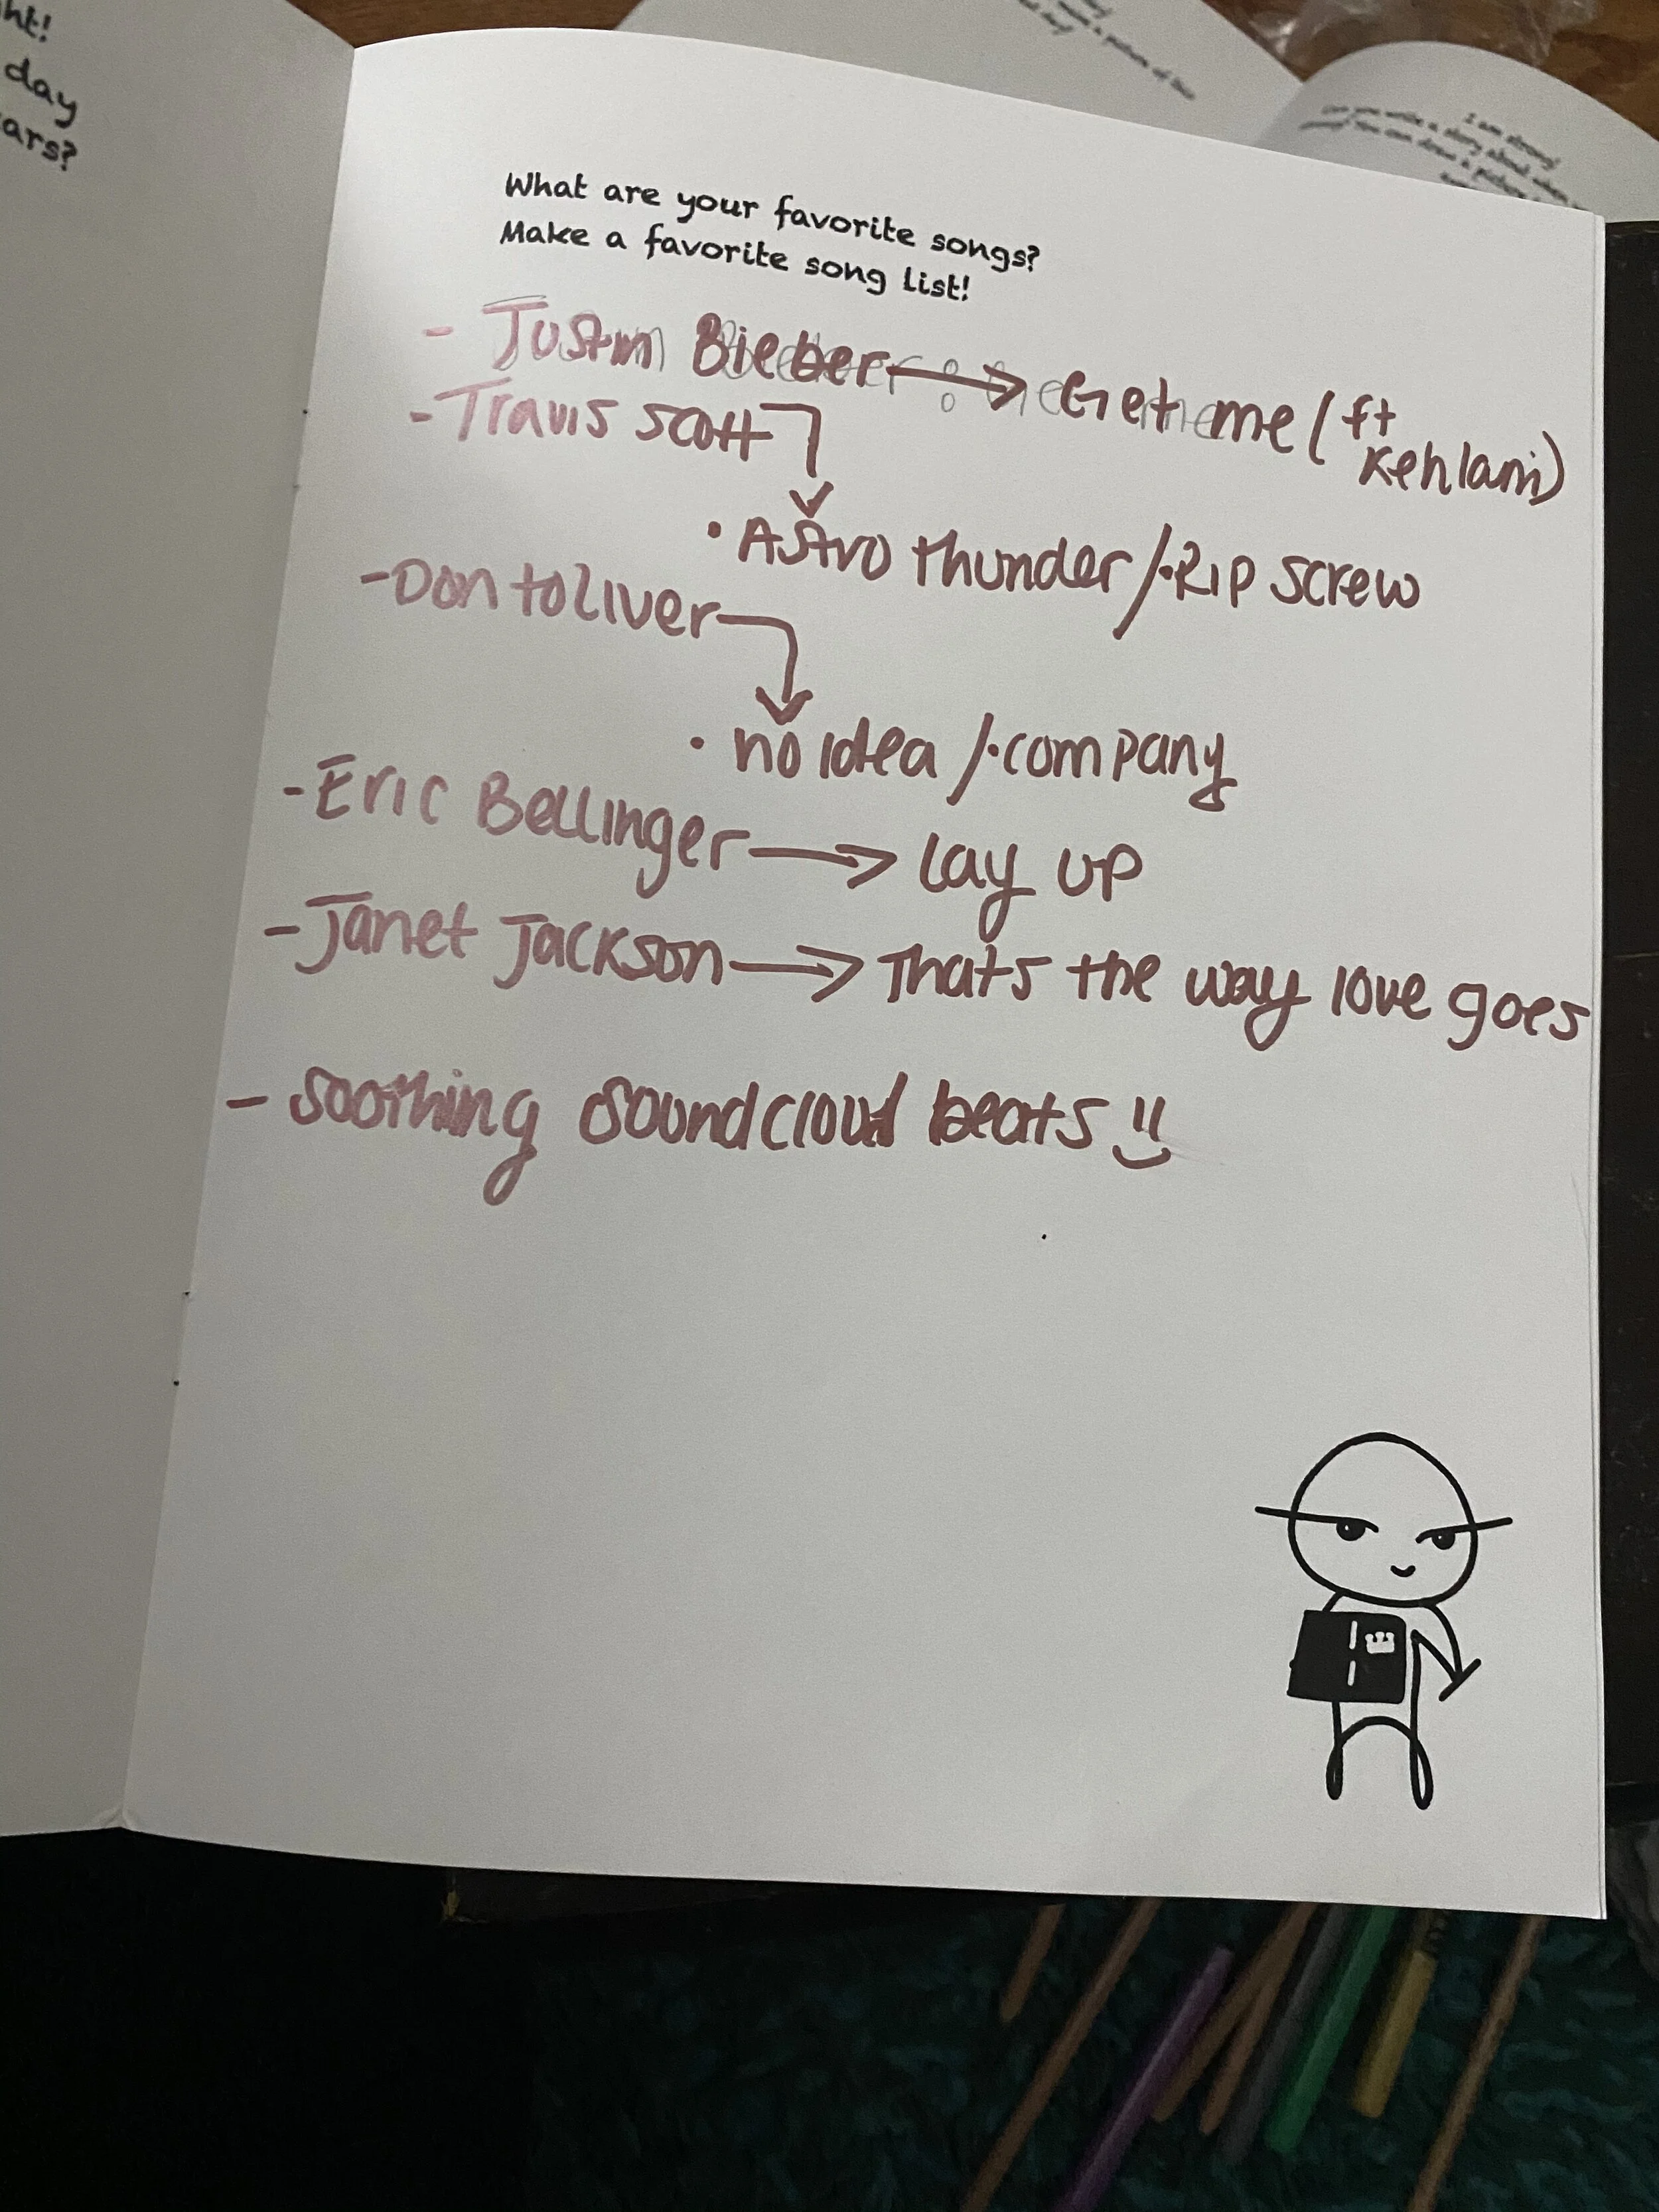 ht!
day
ars?
What are your favorite songs?
Make a favorite song list!
- Justin Bieber → Get me (ft
Kehlani)
- Travis scott
• Astro thunder / • Rip screw
- Don toliver
• no idea / • company
- Eric Bellinger → lay up
- Janet Jackson → Thats the way love goes
- Soothing Soundcloud beats
I am strong!